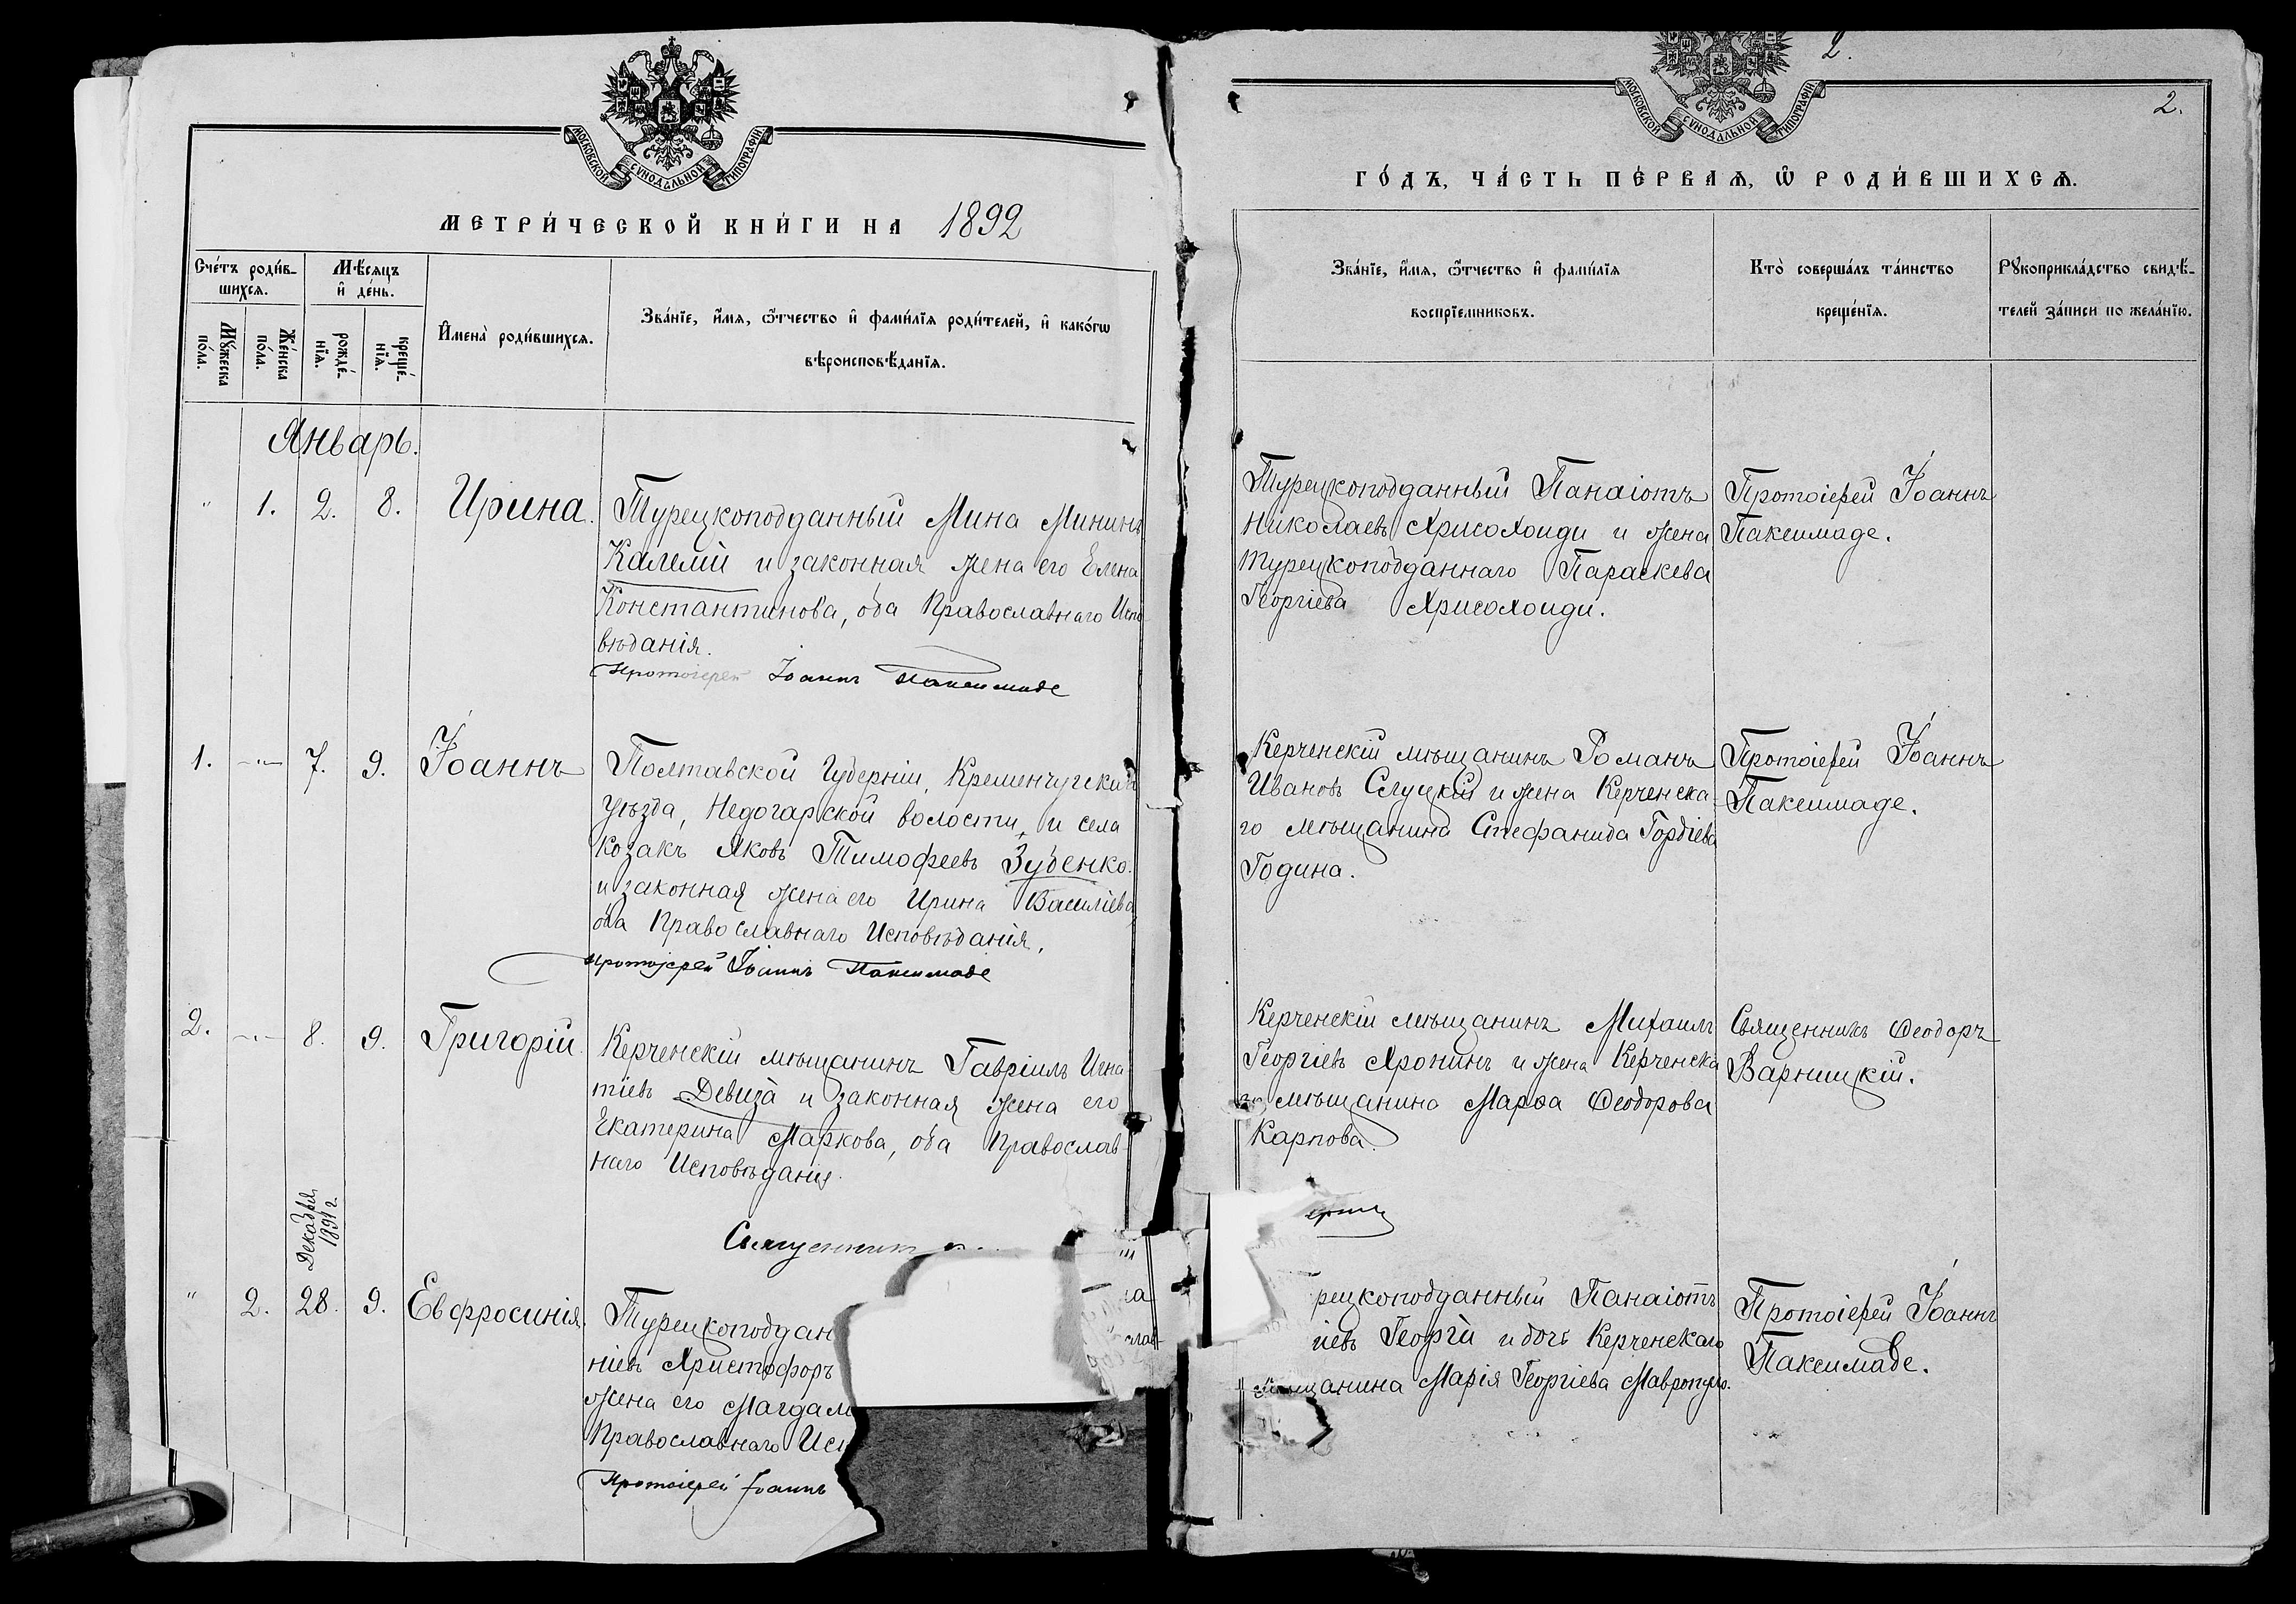 МОСКОВСКОЙ СѴНОДАЛЬНОЙ ТИПОГРАФІИ
МЕТРИ́ЧЕСКОЙ КНИ́ГИ НА 1892
Сче́тъ роди́в-
шихсѧ.
Мѣ́сяцъ
и҆ де́нь.
Мꙋ́жеска
по́ла.
Же́нска
по́ла.
рожде́-
нїѧ.
креще́-
нїѧ.
И҆мена̀ роди́вшихсѧ.
Зва́нїе, и҆́мѧ, ѻ҆́тчество и҆ фами́лїѧ роди́телей, и҆ како́гѡ
вѣроисповѣ́данїѧ.
Январь.
" 1. 2. 8. Ирина.
Турецкоподданный Мина Мининъ
Калелій и законная жена его Елена
Константинова, оба Православнаго Испо
вѣданія.
Протоіерей Іоаннъ Паксимаде
1. -"- 7. 9. Іоаннъ
Полтавской Губерніи, Кременчугскаго
уѣзда, Недогарской волости, и села
козакъ Яковъ Тимофеевъ Зубенко.
и законная жена его Ирина Василіева
оба Православнаго Исповѣданія,
Протоіерей Іоаннъ Паксимаде
2. -"- 8. 9. Григорій
Керченскій мѣщанинъ Гавріилъ Игна
тіевъ Девиза и законная жена его
Екатерина Маркова, оба Православ-
наго Исповѣданія.
Священник
Декабря
1891 г.
" 2. 28. 9. Евфросинія.
Турецкоподдан
ніевъ Христофоръ
жена его Магдал
Православнаго Исп
Протоіерей Іоаннъ
2.
2.
МОСКОВСКОЙ СѴНОДАЛЬНОЙ ТИПОГРАФІИ
ГО́ДЪ, ЧА́СТЬ ПЕ́РВАѦ, Ѡ҆ РОДИ́ВШИХСѦ.
Зва́нїе, и҆́мѧ, ѻ҆́тчество и҆ фами́лїѧ
воспрїемниковъ.
Кто̀ соверша́лъ та́инство
креще́нїѧ.
Рꙋкоприкла́дство свидѣ́-
телей за́писи по жела́нїю.
Турецкоподданный Панаіотъ
Николаевъ Хрисохоиди и жена
турецкоподданнаго Параскева
Георгіева Хрисохоиди.
Протоіерей Іоаннъ
Паксимаде.
Керченскій мѣщанинъ Романъ
Ивановъ Слуцкій и жена Керченска-
го мѣщанина Стефанида Гордіева
Година.
Протоіерей Іоаннъ
Паксимаде.
Керченскій мѣщанинъ Михаилъ
Георгіевъ Хронинъ и жена Керченска
го мѣщанина Марѳа Ѳеодорова
Карпова.
Священникъ Ѳеодоръ
Варницкій.
рецкоподданный Панаіотъ
іевъ Георгій и дочь Керченскаго
мѣщанина Марія Георгіева Мавропуло.
Протоіерей Іоаннъ
Паксимаде.